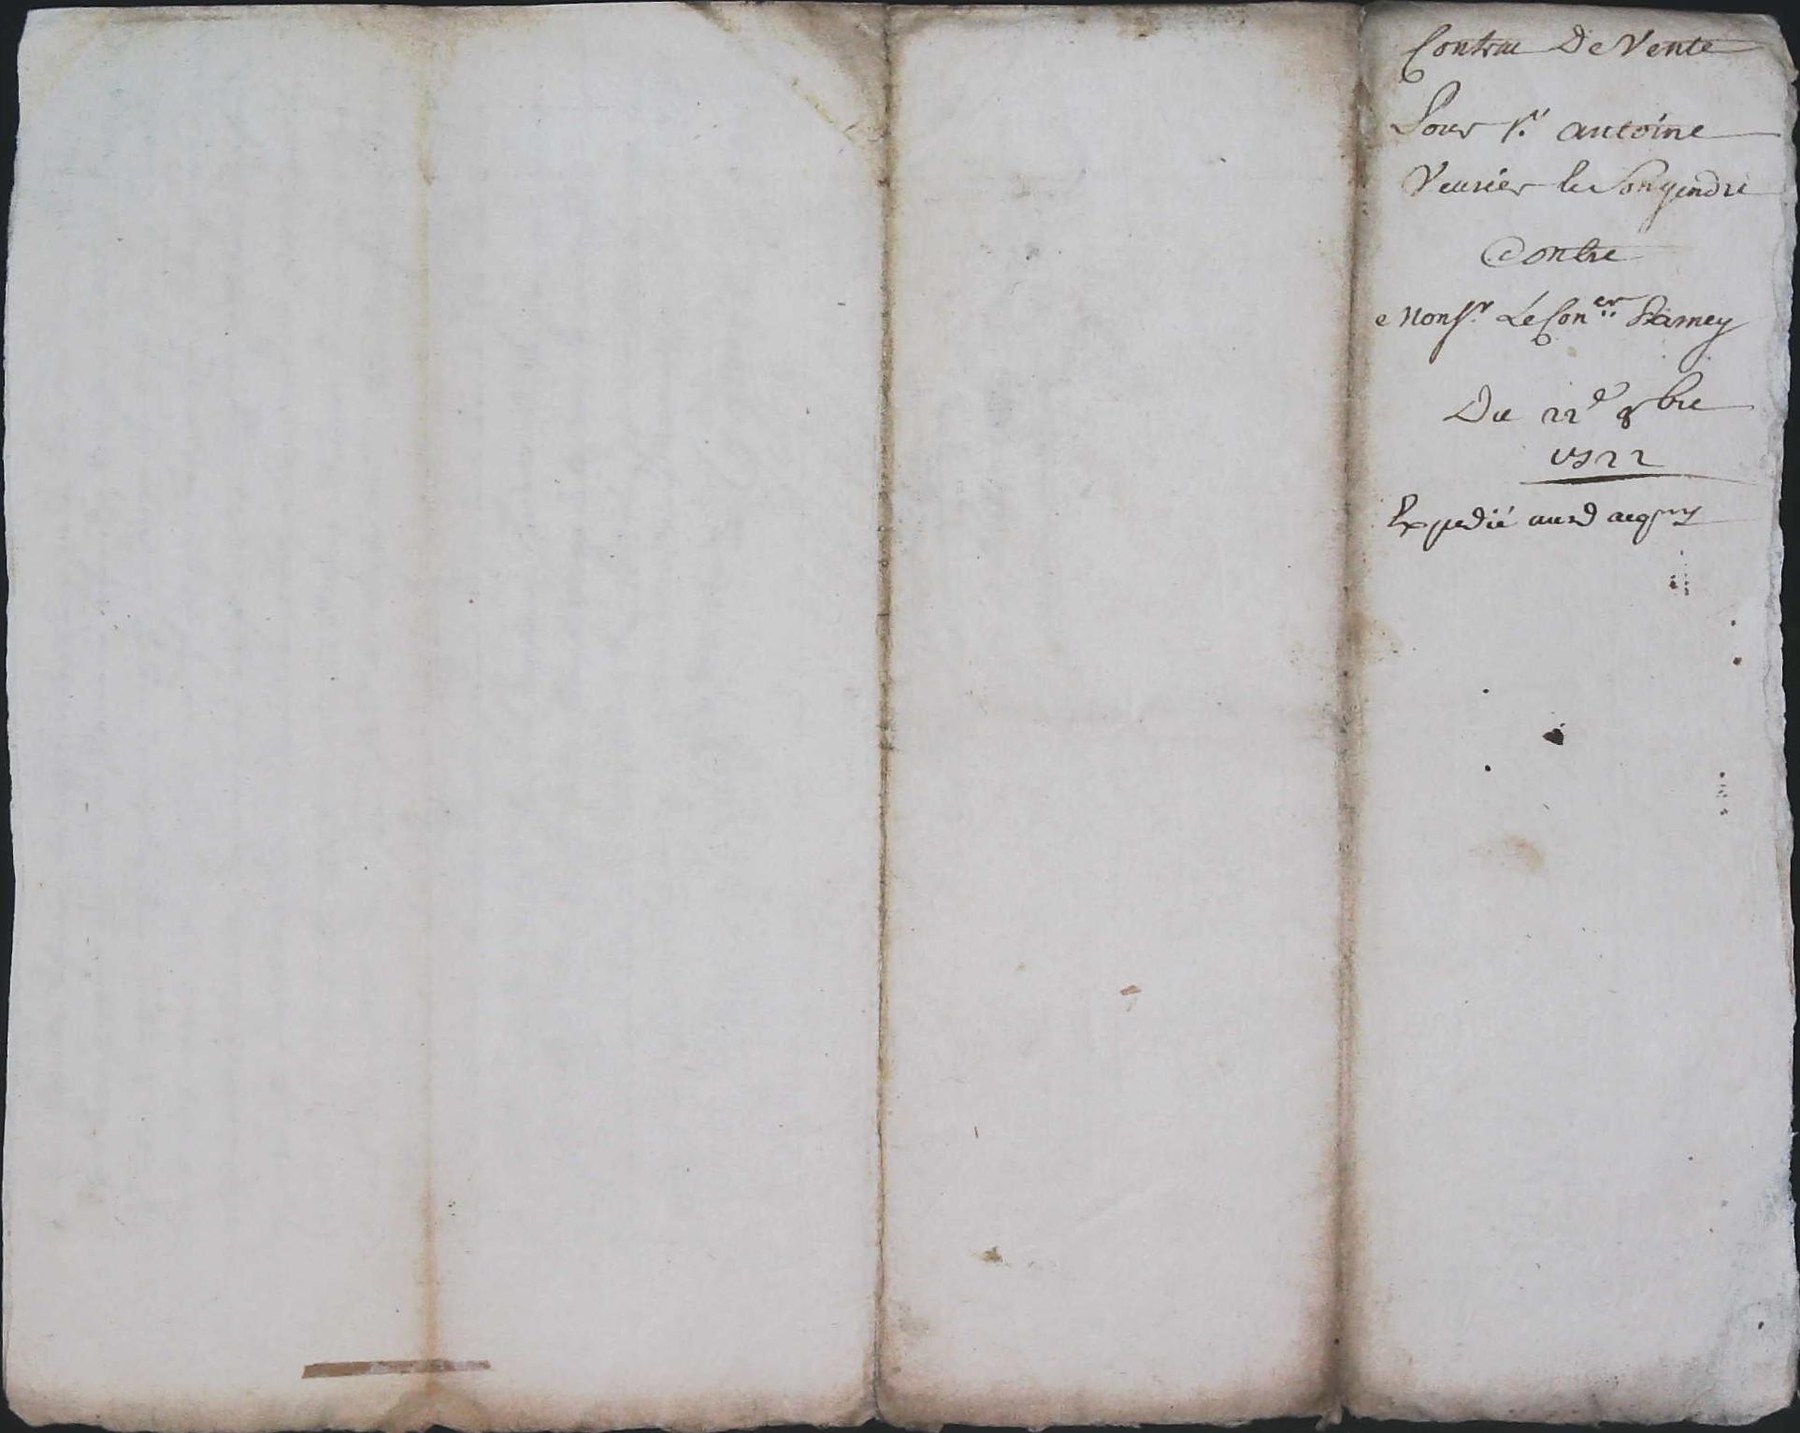 Contrac De Vente
Pour Sr. antoine
Veurier le Son gendre
Contre
Monsr. Le Coner Damey
Du 22e 8bre
1722
Expedié aud